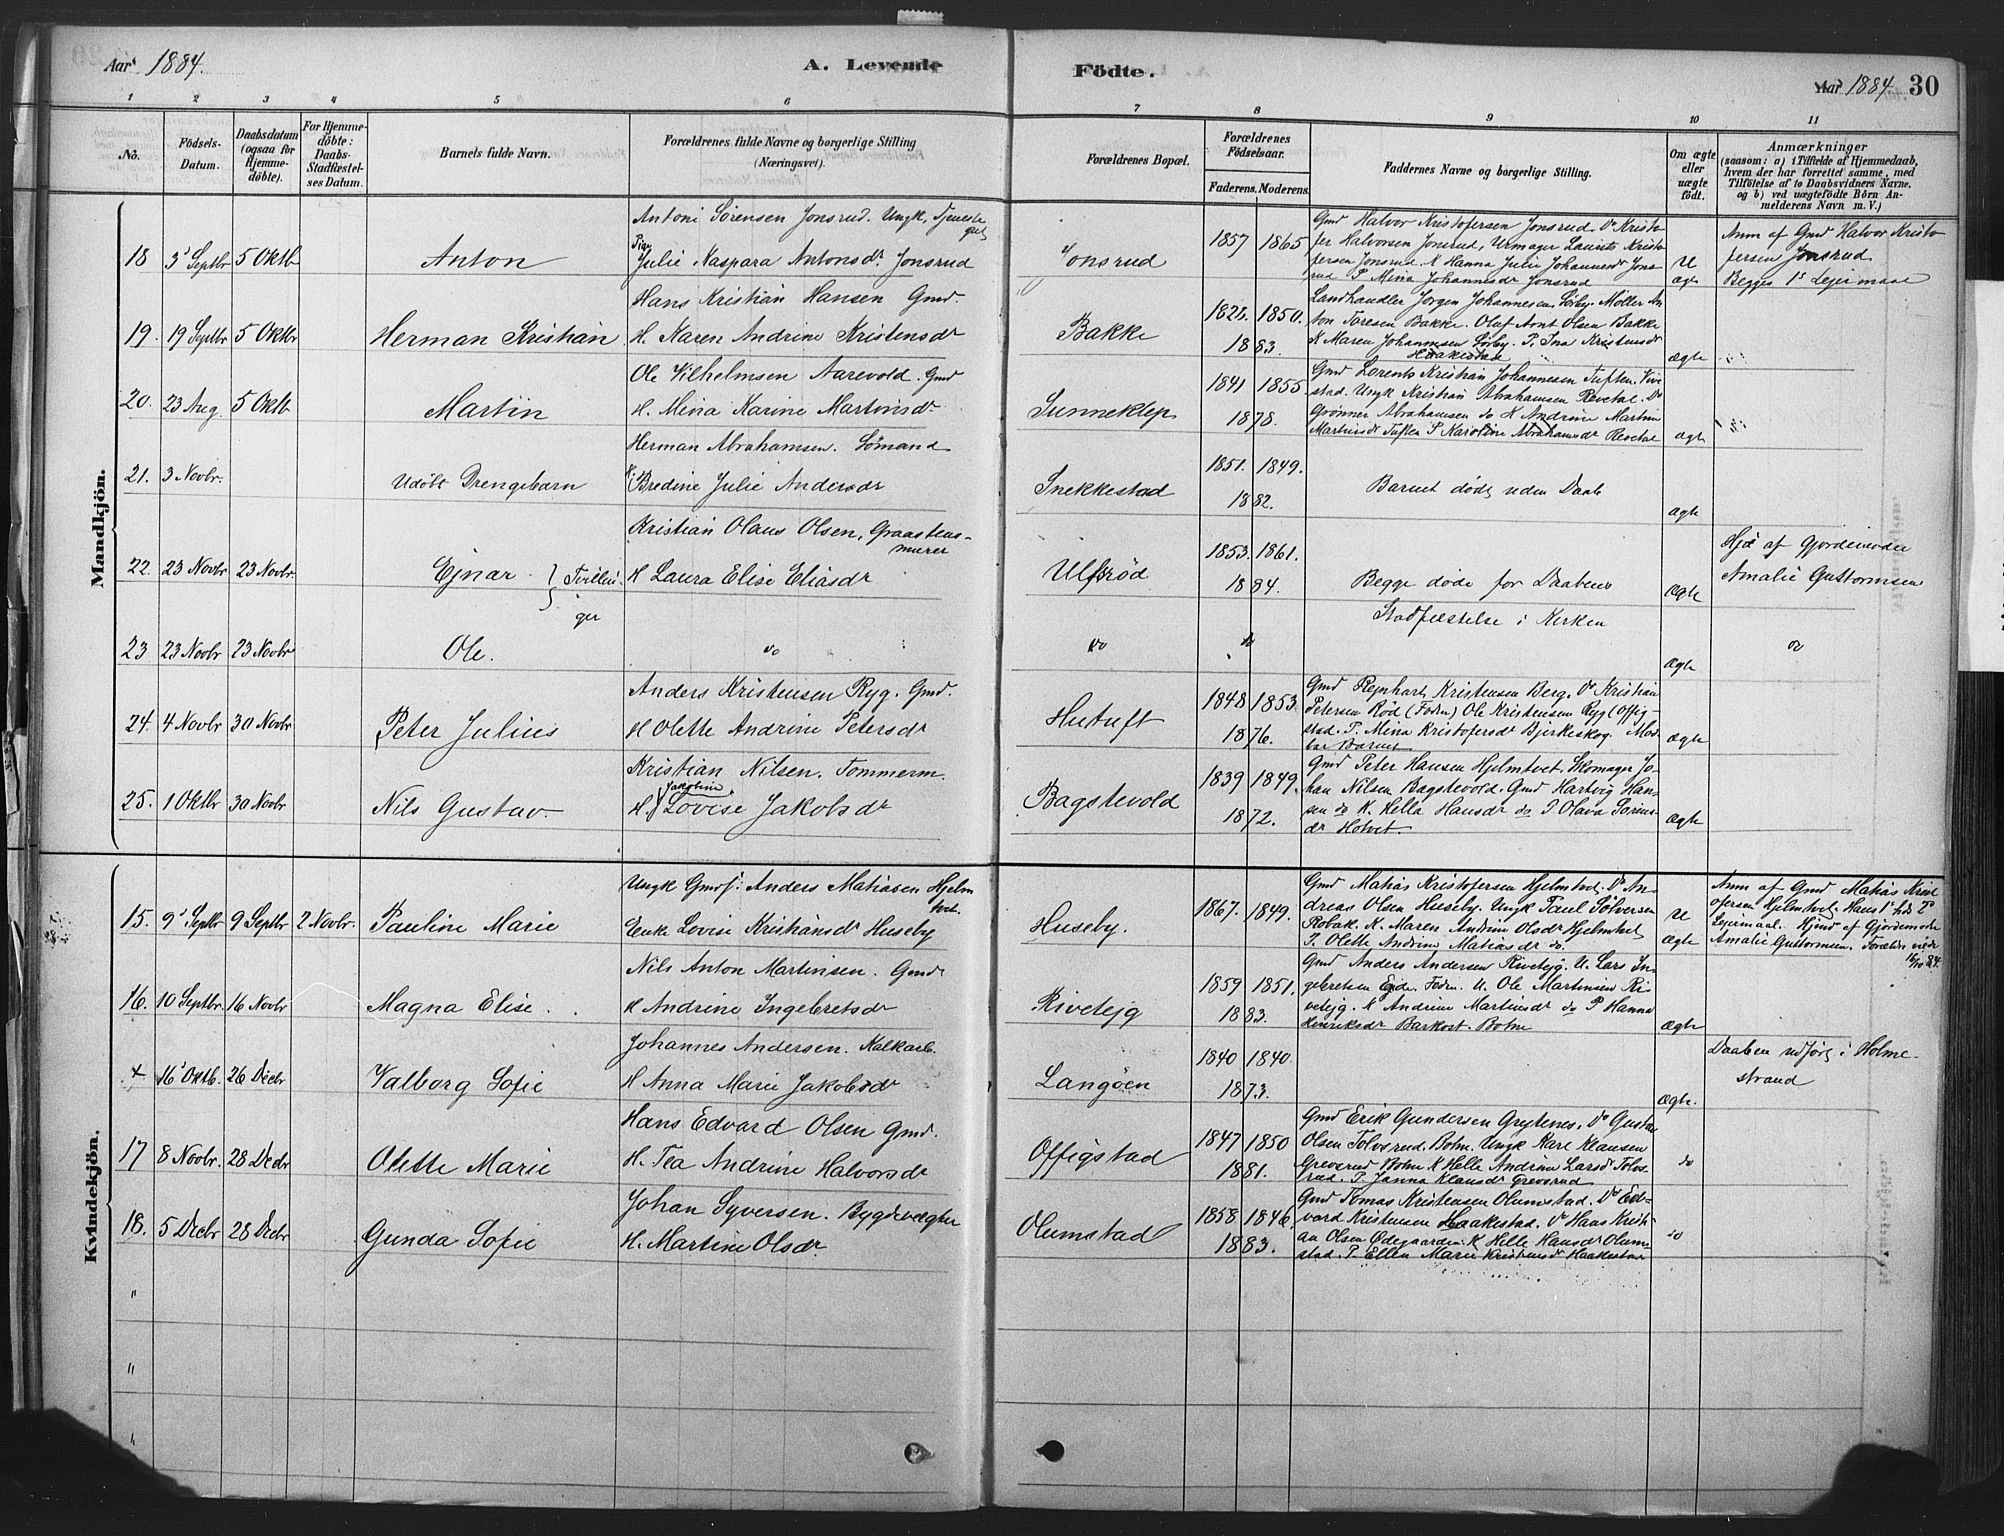 Aar 1884. A. Levende
Födte. Aar 1884 30
1 2 3 4 5 6 7 8 9 10 11
No.
Födsels-Datum.
Daabsdatum (ogsaa for Hjemme-döbte).
For Hjemme-döbte: Daabs-Stadfæstel-ses Datum.
Barnets fulde Navn.
Forældrenes fulde Navne og borgerlige Stilling (Næringsvei).
Forældrenes Bopæl.
Forældrenes Födselsaar.
Faderens. Moderens.
Faddernes Navne og borgerlige Stilling.
Om ægte eller uægte födt.
Anmærkninger
(saasom: a) i Tilfælde af Hjemmedaab,
hvem der har forrettet samme, med
Tilföielse af to Daabsvidners Navne.
og b) ved uægtefödte Börn An-
melderens Navn m. V.)
Mandkjön.
18 3 Septbr 5 Oktb Anton
Antoni Sörensen Jonsrud. Ungk, Tjeneste
gut
Pige
Julie Kaspara Antonsdr Jonsrud
Jonsrud 1857 1865
Gmd Halvor Kristofersen Jonsrud. Do Kristo-
fer Halvorsen Jonsrud, Urmager Laurits Kristo-
fersen Jonsrud K Hanna Julie Johannesdr Jons-
rud P Mina Johannesdr Jonsrud
U ægte
Anm af Gmd Halvor Kristo
fersen Jonsrud
Begges 1ste Leiermaal
19. 19 Septbr 5 Oktbr Herman Kristian
Hans Kristian Hansen Gmd.
H. Karen Andrine Kristensdr
Bakke 1828. 1850.
1883.
Landhandler Jörgen Johannesen Sörby. Möller An
ton Toresen Bakke. Olaf Arnt Olsen Bakke
K Maren Johannesen Sörby. P. Ina Kristensdr
Haakestad
ægte
20. 23 Aug. 5 Oktb Martin
Ole Vilhelmsen Aarevold. Gmd
H. Mina Karine Martinsdr
Sunneklep 1841 1855
1878.
Gmd Lorents Kristian Johannesen Tuften. Vive
stad. Ungk Kristian Abrahamsen Revetal. Do
Grönner Abrahamsen do K Andrine Martine
Martinsdr Tuften P Karoline Abrahamsdr Revetal
ægte
21. 3 Novbr. Udöbt Drengebarn
Herman Abrahamsen. Sömand
H. Bredine Julie Andersdr
Snekkestad 1851. 1849.
1882.
Barnet död uden Daab
ægte
22. 23 Novbr. 23 Novbr. Ejnar. } Tvillin-
ger
Kristian Olaus Olsen, Graastens-
murer
H Laura Elise Eliasdr
Ulfsröd 1853. 1861.
1884.
Begge döde for Daabens
Stadfæstelse i Kirken
ægte
Hjd af Gjordemoder
Amalie Guttormsen
23 23 Novbr 23 Novbr Ole. do
do do ægte do
24. 4 Novbr 30 Novbr Peter Julius
Anders Kristensen Ryg. Gmd.
H Olette Andrine Petersdr
Hutuft 1848 1853
1876.
Gmd Reinhart Kristensen Berg. Do Kristian
Petersen Röd (Fodm) Ole Kristensen Ryg (Offig-
stad. P. Mina Kristofersdr Bjerkeskog. Mod
bar Barnet
ægte
25. 1 Oktbr 30 Novbr Nils Gustav.
Kristian Nilsen. Tommerm.
Jakobine
H. Lovise Jakobsdr
Bagstevold 1839 1849.
1872.
Gmd Peter Hansen Hjelmtvet. Skomager Jo-
han Nilsen Bagstevold. Gmd Hartvig Han-
sen do K. Hella Hansdr do P Olava Sörens-
dr Holvet
ægte
Kvindekjön.
15. 9 Septbr 9 Septbr 2 Novbr. Pauline Marie
Ungk Gmdf. Anders Matiasen Hjelm
tvet.
Enk Lovise Kristiansdr Huseby
Huseby. 1867. 1849.
Gmd Matias Kristofersen Hjelmtvet. Do An-
dreas Olsen Huseby. Ungk Paul Sölversen
Robak. K. Maren Andrine Olsdr Hjelmtvet
P. Olette Andrine Matiasdr do.
U ægte
Anm af Gmd Matias Krist
ofersen Hjelmtvet. Hans 1ste hds 2det
Leiermaal. Hjmd af Gjordemode
Amalie Guttormsen. Forældre viede
16/10 84.
16. 10 Septbr. 16 Novbr Magna Elise.
Nils Anton Martinsen. Gmd
H Andrine Ingebretsdr
Rivetejg 1859 1851.
1883.
Gmd Anders Andersen Rivetejg. U. Lars In-
gebretsen Ende. Fodm. U. Ole Martinsen Ri-
vetejg. K Andrine Martinsdr do P Hanna
Henriksdr Barkost. Botne
ægte
x 16 Oktb. 26 Decbr Valborg Sofie
Johannes Andersen. Kalkarb.
H Anna Marie Jakobsdr
Langöen 1840 1840.
1873.
ægte.
Daaben udfört i Holme-
strand
17 8 Novbr. 28 Decbr Olette Marie
Hans Edvard Olsen Gmd.
H. Tea Andrine Halvorsdr
Offigstad 1847 1850
1881.
Gmd Erik Gundersen Grytenes. Do Gustav
Olsen Tolvsrud. Botne. Ungk Karl Klausen
Grevsrud Botne K Helle Andrine Larsdr Tolvs-
rud. P. Janna Klausdr Grevsrud
do
18. 5 Decbr 28 Decbr Gunda Sofie
Johan Syversen. Bygdevægter
H. Martine Olsdr
Olumstad 1858 1846.
1883.
Gmd Tomas Kristensen Olumstad. Do Ed-
vard Kristensen Haakestad. Do Hans Kristi-
an Olsen Ödegaarden K Helle Hansdr Olum-
stad. P. Ellen Marie Kristensdr Haakestad
do
"
"